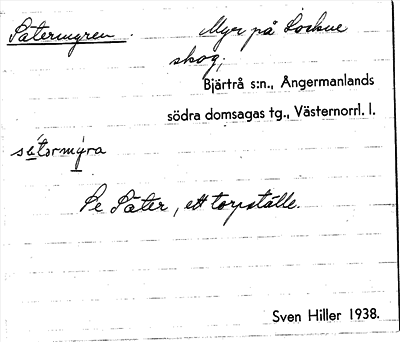 Sätermyren. Myr på Lockne
skog,
Bjärtrå s:n., Ångermanlands
södra domsagas tg., Västernorrl. l.
sä̀tormy̱ra
Se Säter, ett torpställe.
Sven Hiller 1938.